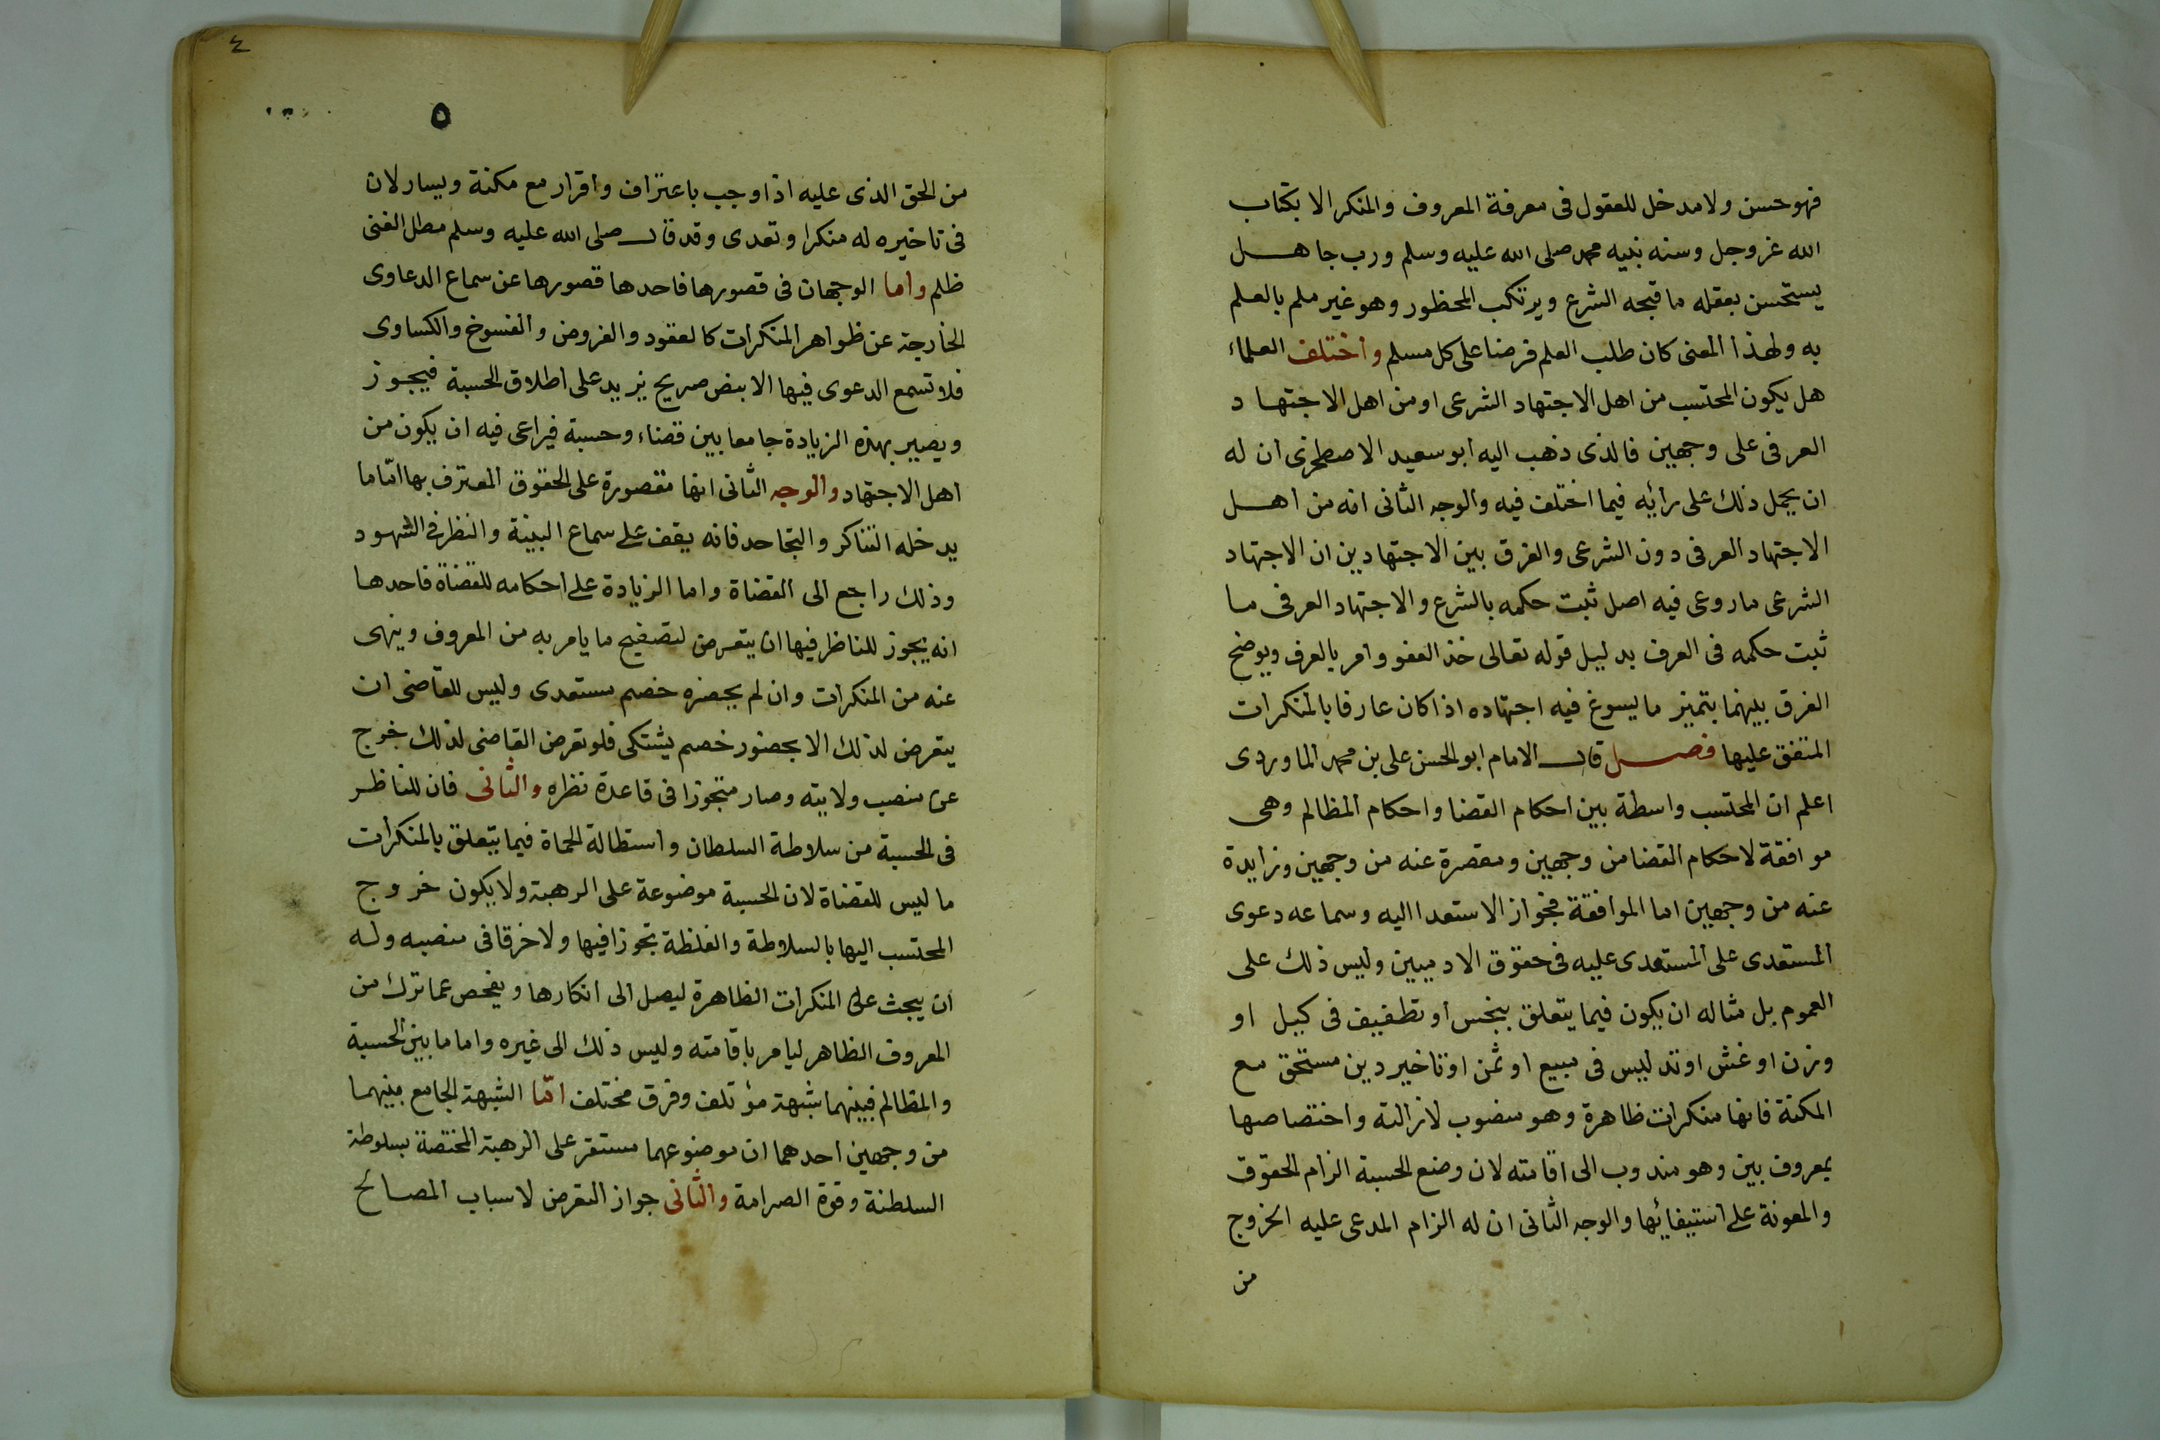 فهو حسن ولا مدخل للعقول فى معرفة المعروف والمنكر الا بكتاب
الله عز وجل وسنه نبيه محمد صلى الله عليه وسلم ورب جاهل
يستحسن بعقله ما قبحه الشرع ويرتكب المحظور وهو غير ملم بالعلم
به ولهذا المعنى كان طلب العلم فرضا على كل مسلم واختلف العلماء
هل يكون المحتسب من اهل الاجتهاد الشرعى او من اهل الاجتهاد
العرفى على وجهين فالذى ذهب اليه ابو سعيد الاصطخرى ان له
ان يحمل ذلك على رأيه فيما اختلف فيه والوجه الثانى انه من اهل
الاجتهاد العرفى دون الشرعى والفرق بين الاجتهادين ان الاجتهاد
الشرعى ما روعى فيه اصل ثبت حكمه بالشرع والاجتهاد العرفى ما
ثبت حكمه فى العرف بدليل قوله تعالى خذ العفو وامر بالعرف ويوضح
الفرق بينهما بتميز ما يسوغ فيه اجتهاده اذا كان عارفا بالمنكرات
المتفق عليها فصل قال الامام ابو الحسن على بن محمد الماوردى
اعلم ان المحتسب واسطة بين احكام القضا واحكام المظالم وهى
موافقة لاحكام القضا من وجهين ومقصرة عنه من وجهين وزايدة
عنه من وجهين اما الموافقة فجواز الاستعدا اليه وسماعه دعوى
المستعدى على المستعدى عليه فى حقوق الادميين وليس ذلك على
العموم بل مثاله ان يكون فيما يتعلق ببخس او تطفيف فى كيل او
وزن او غش او تدليس فى مبيع او ثمن او تاخير دين مستحق مع
المكنة فانها منكرات ظاهرة وهو منصوب لازالته واختصاصها
بمعروف بين وهو مندوب الى اقامته لان وضع الحسبة الزام الحقوق
والمعونة على استيفائها والوجه الثانى ان له الزام المدعى عليه الخروج
من
٤
٥
من الحق الذى عليه اذا وجب باعتراف واقرار مع مكنة ويسار لان
فى تاخيره له منكرا وتعدى وقد قال صلى الله عليه وسلم مطل الغنى
ظلم واما الوجهان فى قصورها فاحدها قصورها عن سماع الدعاوى
الخارجة عن ظواهر المنكرات كالعقود والفروض والفسوخ والكساوى
فلا تسمع الدعوى فيها الا بنص صريح يزيد على اطلاق الحسبة فيجوز
ويصير بهذه الزيادة جامعا بين قضاء وحسبة فيراعى فيه ان يكون من
اهل الاجتهاد والوجه الثانى انها مقصورة على الحقوق المعترف بها امّا ما
يدخله التناكر والتجاحد فانه يقف على سماع البينة والنظر فى الشهود
وذلك راجع الى القضاة واما الزيادة على احكامه للقضاة فاحدها
انه يجوز للناظر فيها ان يتعرض لتصفيح ما يامر به من المعروف وينهى
عنه من المنكرات وان لم يحضره خصم مستعدى وليس للقاضى ان
يتعرض لذلك الا بحضور خصم يشتكى فلو تعرض القاضى لذلك خرج
عن منصب ولايته وصار متجوزا فى قاعدة نظره والثانى فان للناظر
فى الحسبة من سلاطة السلطان واستطالة الحماة فيما يتعلق بالمنكرات
ما ليس للقضاة لان الحسبة موضوعة على الرهبة ولا يكون خروج
المحتسب اليها بالسلاطة والغلظة تجوزا فيها ولا خرقا فى منصبه وله
ان يبحث على المنكرات الظاهرة ليصل الى انكارها ويفحص عما ترك من
المعروف الظاهر ليامر باقامته وليس ذلك الى غيره واما ما بين الحسبة
والمظالم فبينهما شبهة مؤتلف وفرق مختلف امّا الشبهة الجامع بينهما
من وجهين احدهما ان موضوعهما مستقر على الرهبة المختصة بسلوطة
السلطنة وقوة الصرامة والثانى جواز التعرض لاسباب المصالح